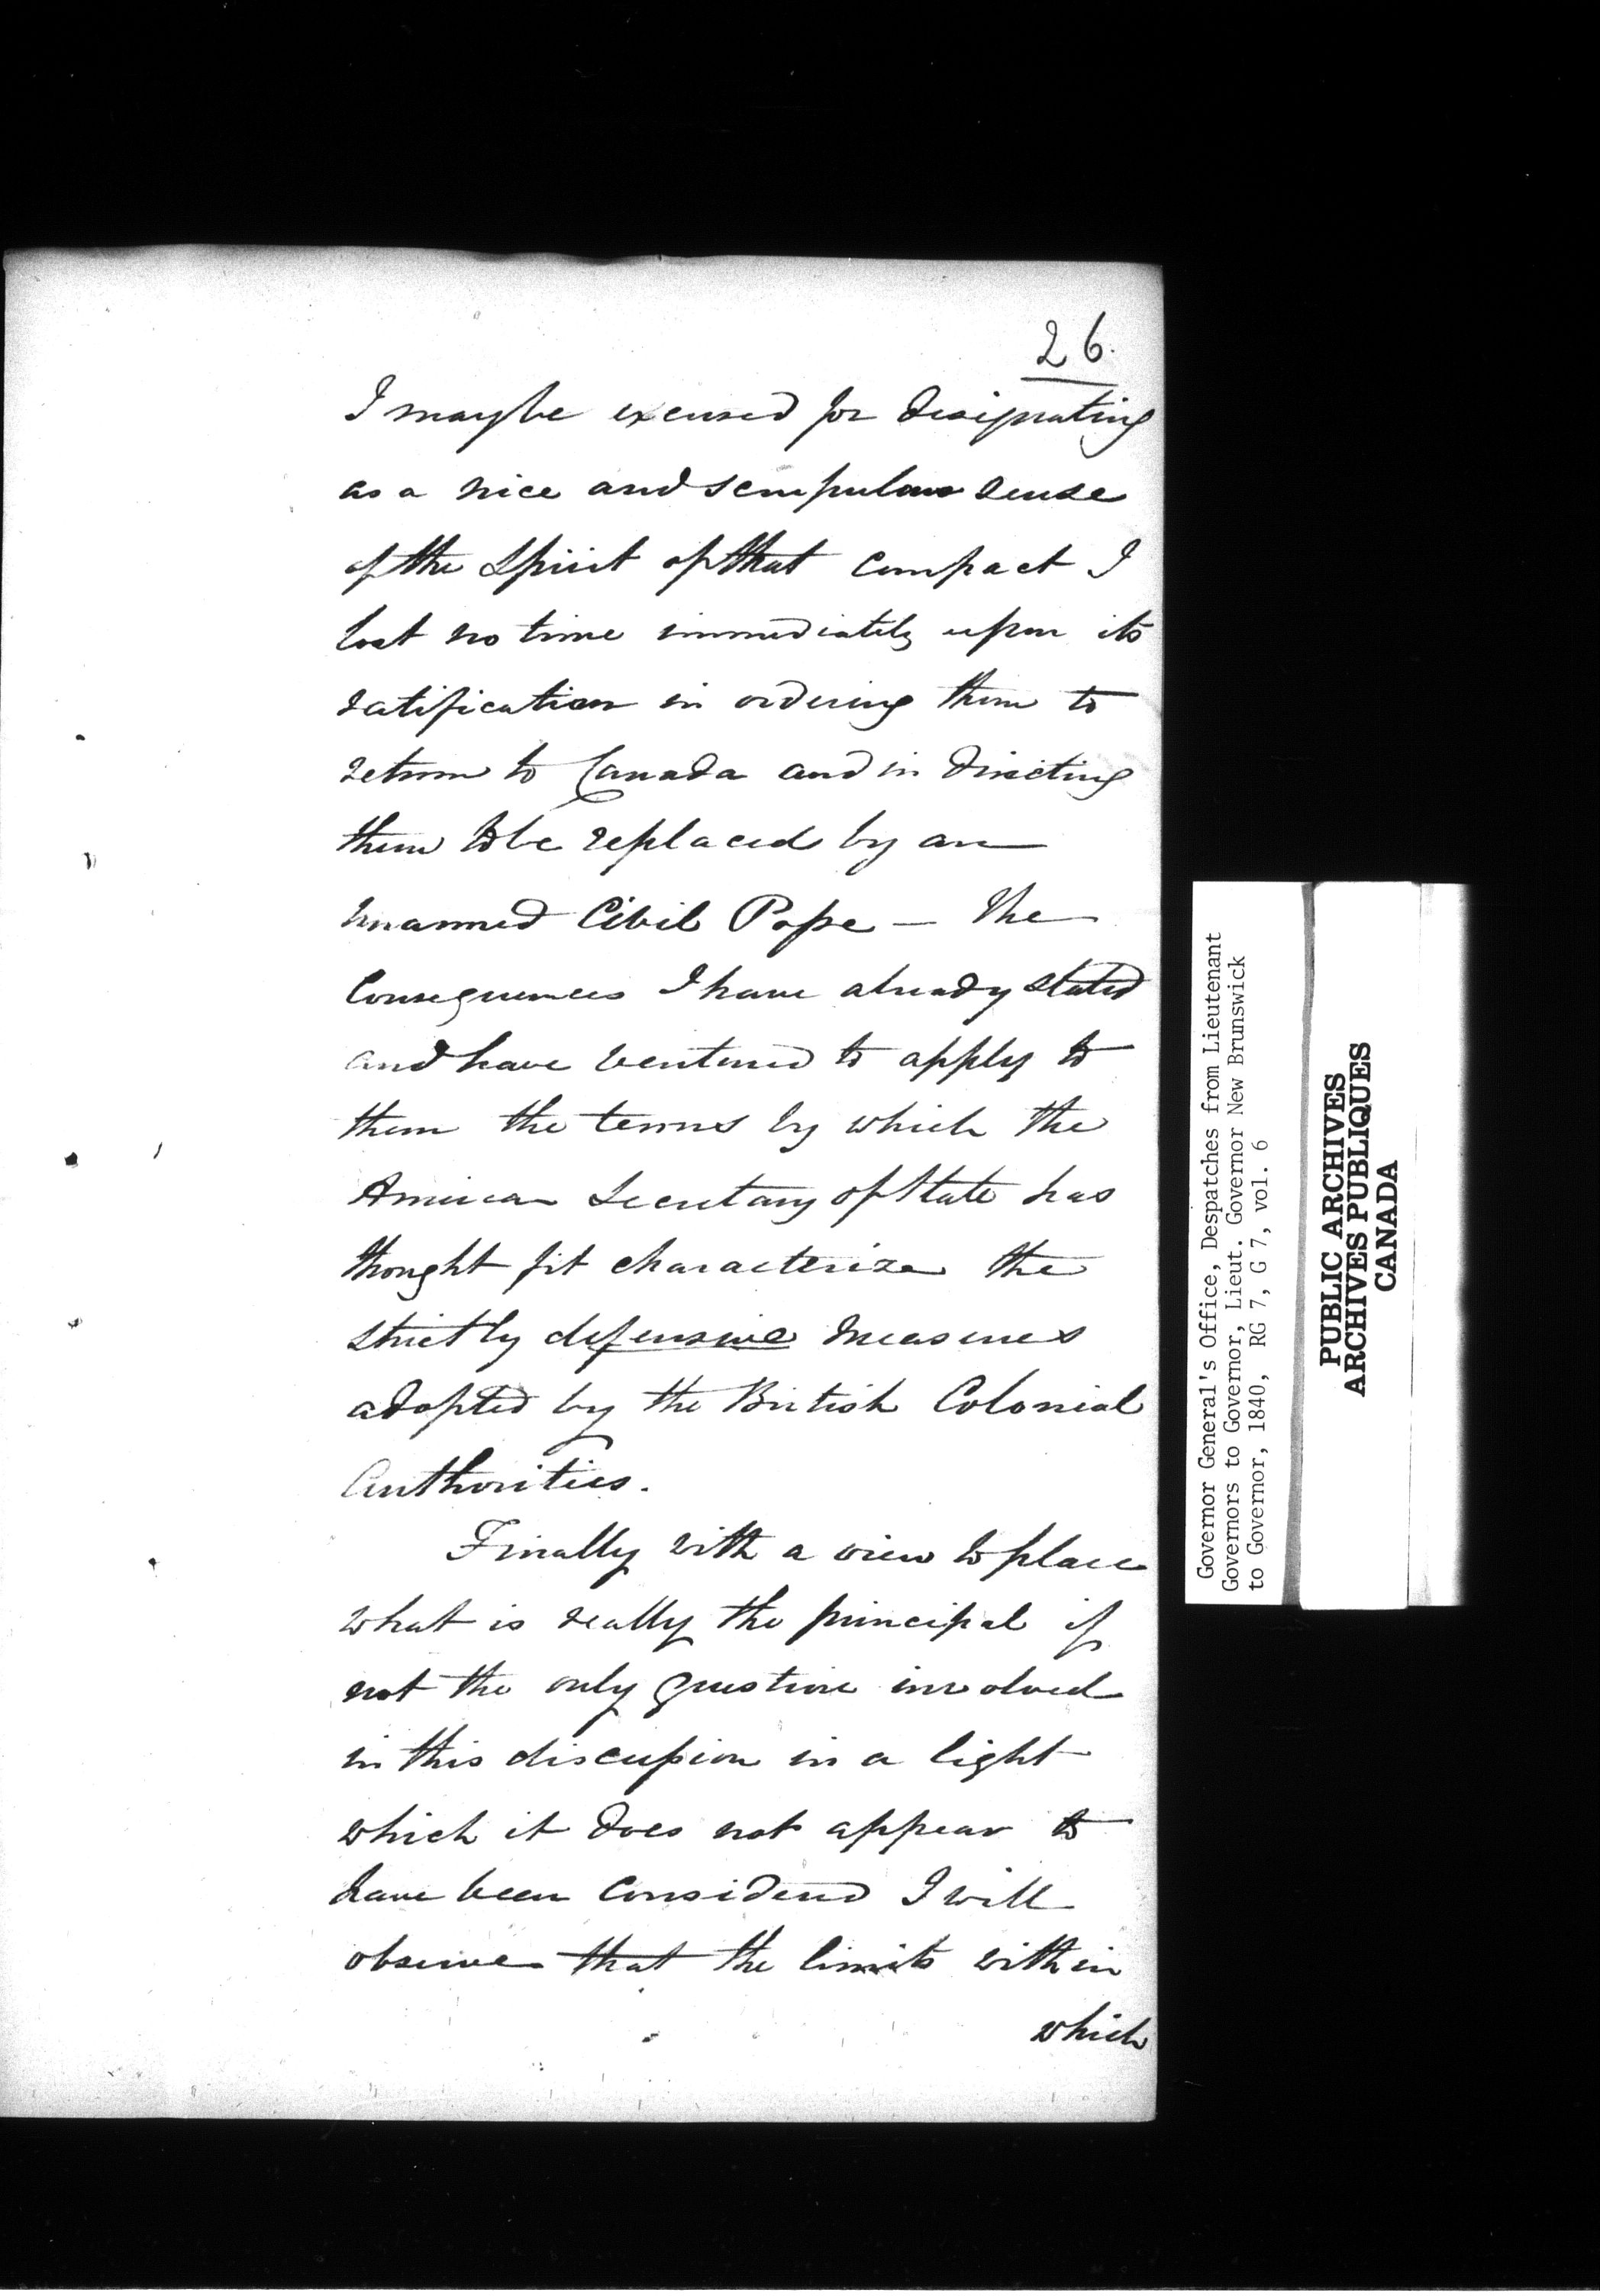 26.
I may be excused for designating
as a nice and scrupulous sense
of the Spirit of that Compact I
lost no time immediately upon its
ratification in ordering them to
return to Canada and in directing
them to be replaced by an
unarmed Civil Posse — The
Consequences I have already stated
and have ventured to apply to
them the terms by which the
American Secretary of State has
thought fit characterize the
strictly defensive measures
adopted by the British Colonial
Authorities.
Finally with a view to place
what is really the principal if
not the only question involved
in this discussion in a light
which it does not appear to
have been considered I will
observe that the limits within
which
Governor General's Office, Despatches from Lieutenant
Governors to Governor, Lieut. Governor New Brunswick
to Governor, 1840, RG 7, G 7, vol. 6
PUBLIC ARCHIVES
ARCHIVES PUBLIQUES
CANADA